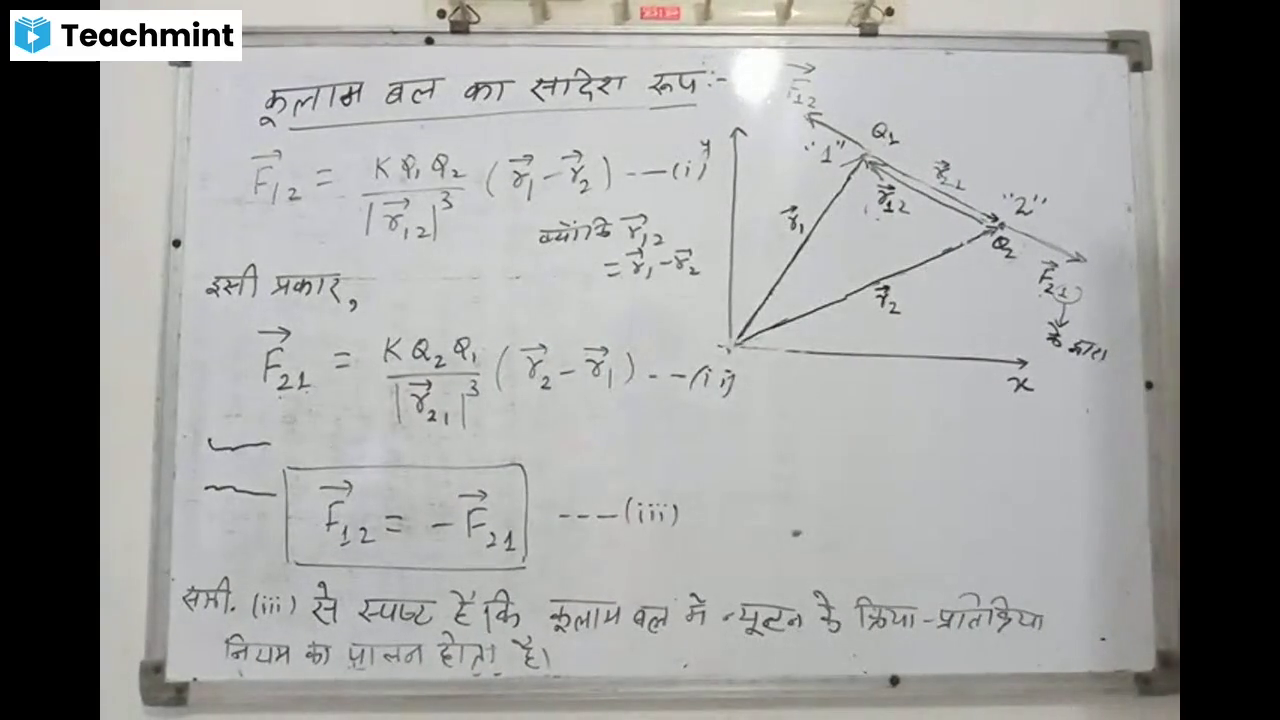 Teachmint
कूलाम बल का सादिश रूप :-
F⃗₁₂ = KQ₁Q₂ / |r⃗₁₂|³ (r⃗₁ - r⃗₂) ---(i)
क्योंकि r⃗₁₂
= r⃗₁ - r⃗₂
इसी प्रकार,
F⃗₂₁ = KQ₂Q₁ / |r⃗₂₁|³ (r⃗₂ - r⃗₁) ---(ii)
F⃗₁₂ = - F⃗₂₁ ----(iii)
समी. (iii) से स्पष्ट है कि कूलाम बल में न्यूटन के क्रिया-प्रतिक्रिया
नियम का पालन होता है।
F⃗₁₂
Q₁
"1"
y
r⃗₂₁
r⃗₁₂
"2"
Q₂
r⃗₁
r⃗₂
F⃗₂₁
x